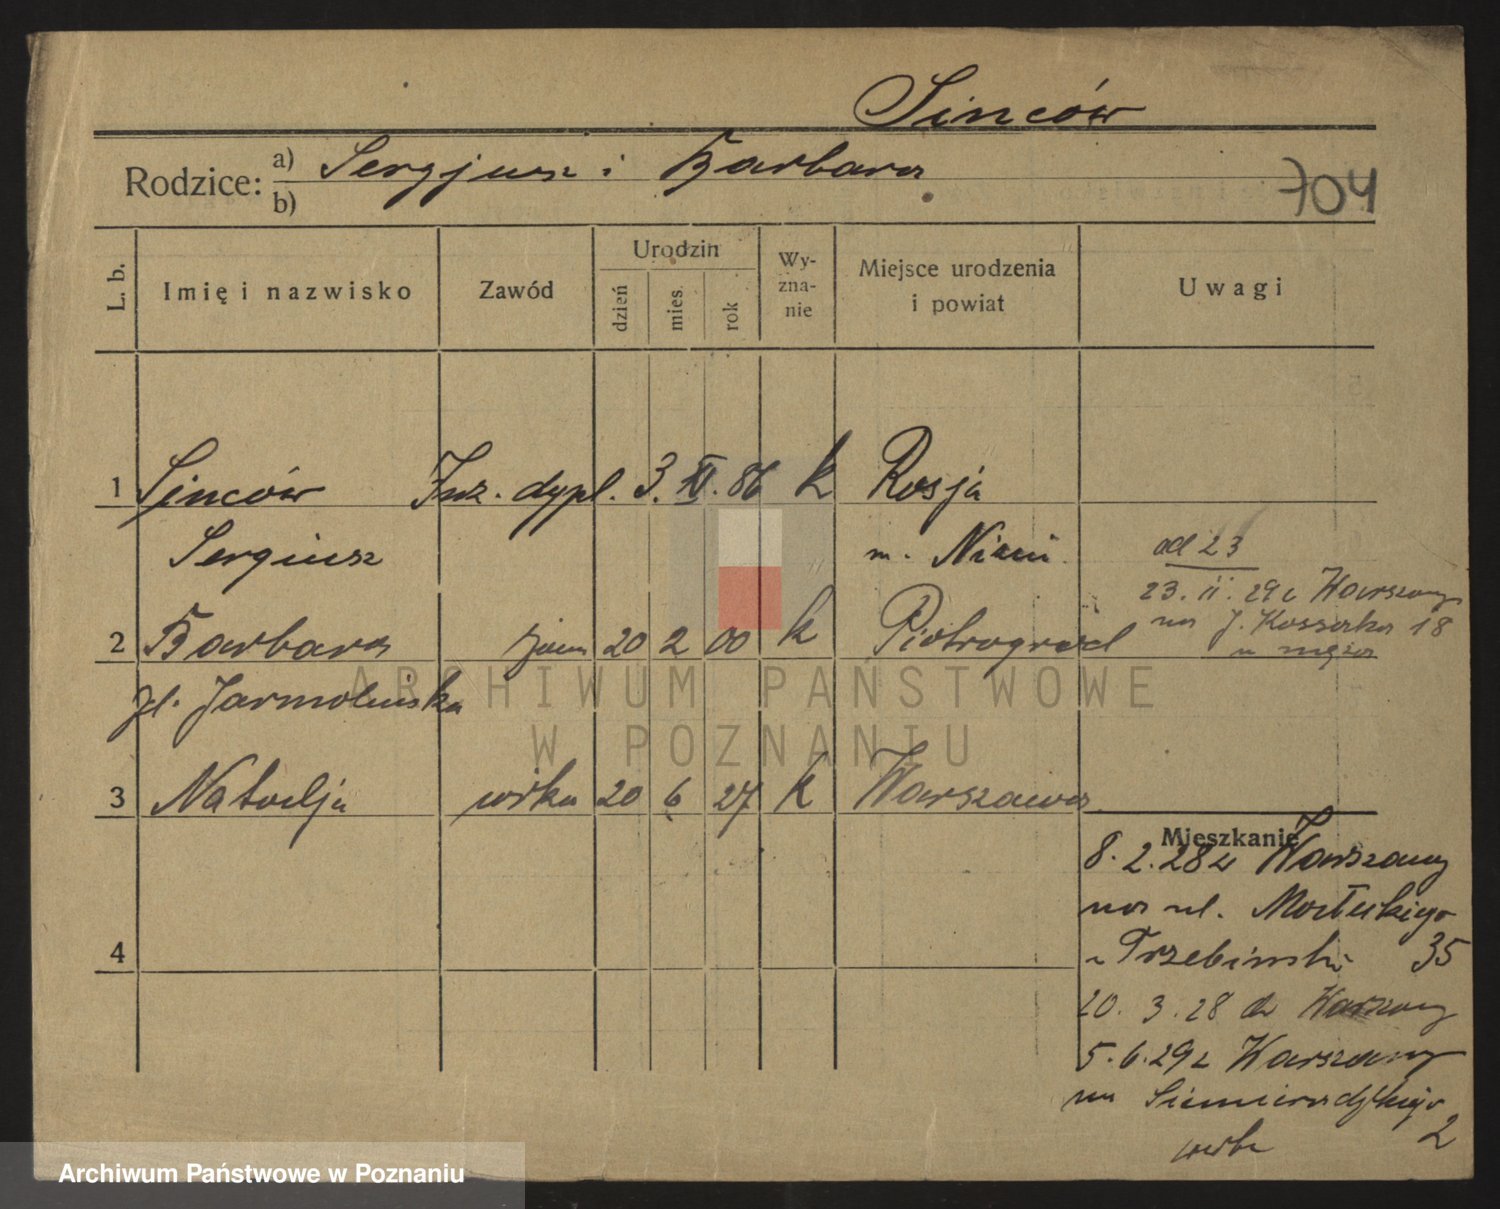 Sinców
Rodzice: a) Sergjusz i Barbara
b)
704
L. b.
Imię i nazwisko
Zawód
Urodzin
dzień
mies.
rok
Wy-
zna-
nie
Miejsce urodzenia
i powiat
Uwagi
1 Sinców Inż. dypl. 3. XI. 86 k Rosja
Sergiusz m.
ad 23
23. II. 29 z Warszawy
na J. Kossaka 18
u męża
2 Barbara żona 20 2 00 k Piotrograd
zd. Jarmolińska
3 Natalja córka 20 6 27 k Warszawa
4
Mieszkanie
8. 2. 28 z Warszawy
na ul. Matejkiego
u Trzebiński 35
20. 3. 28 do Warszawy
5. 6. 29 z Warszawy
na Siemiradzkiego
2
ARCHIWUM PAŃSTWOWE
W POZNANIU
Archiwum Państwowe w Poznaniu